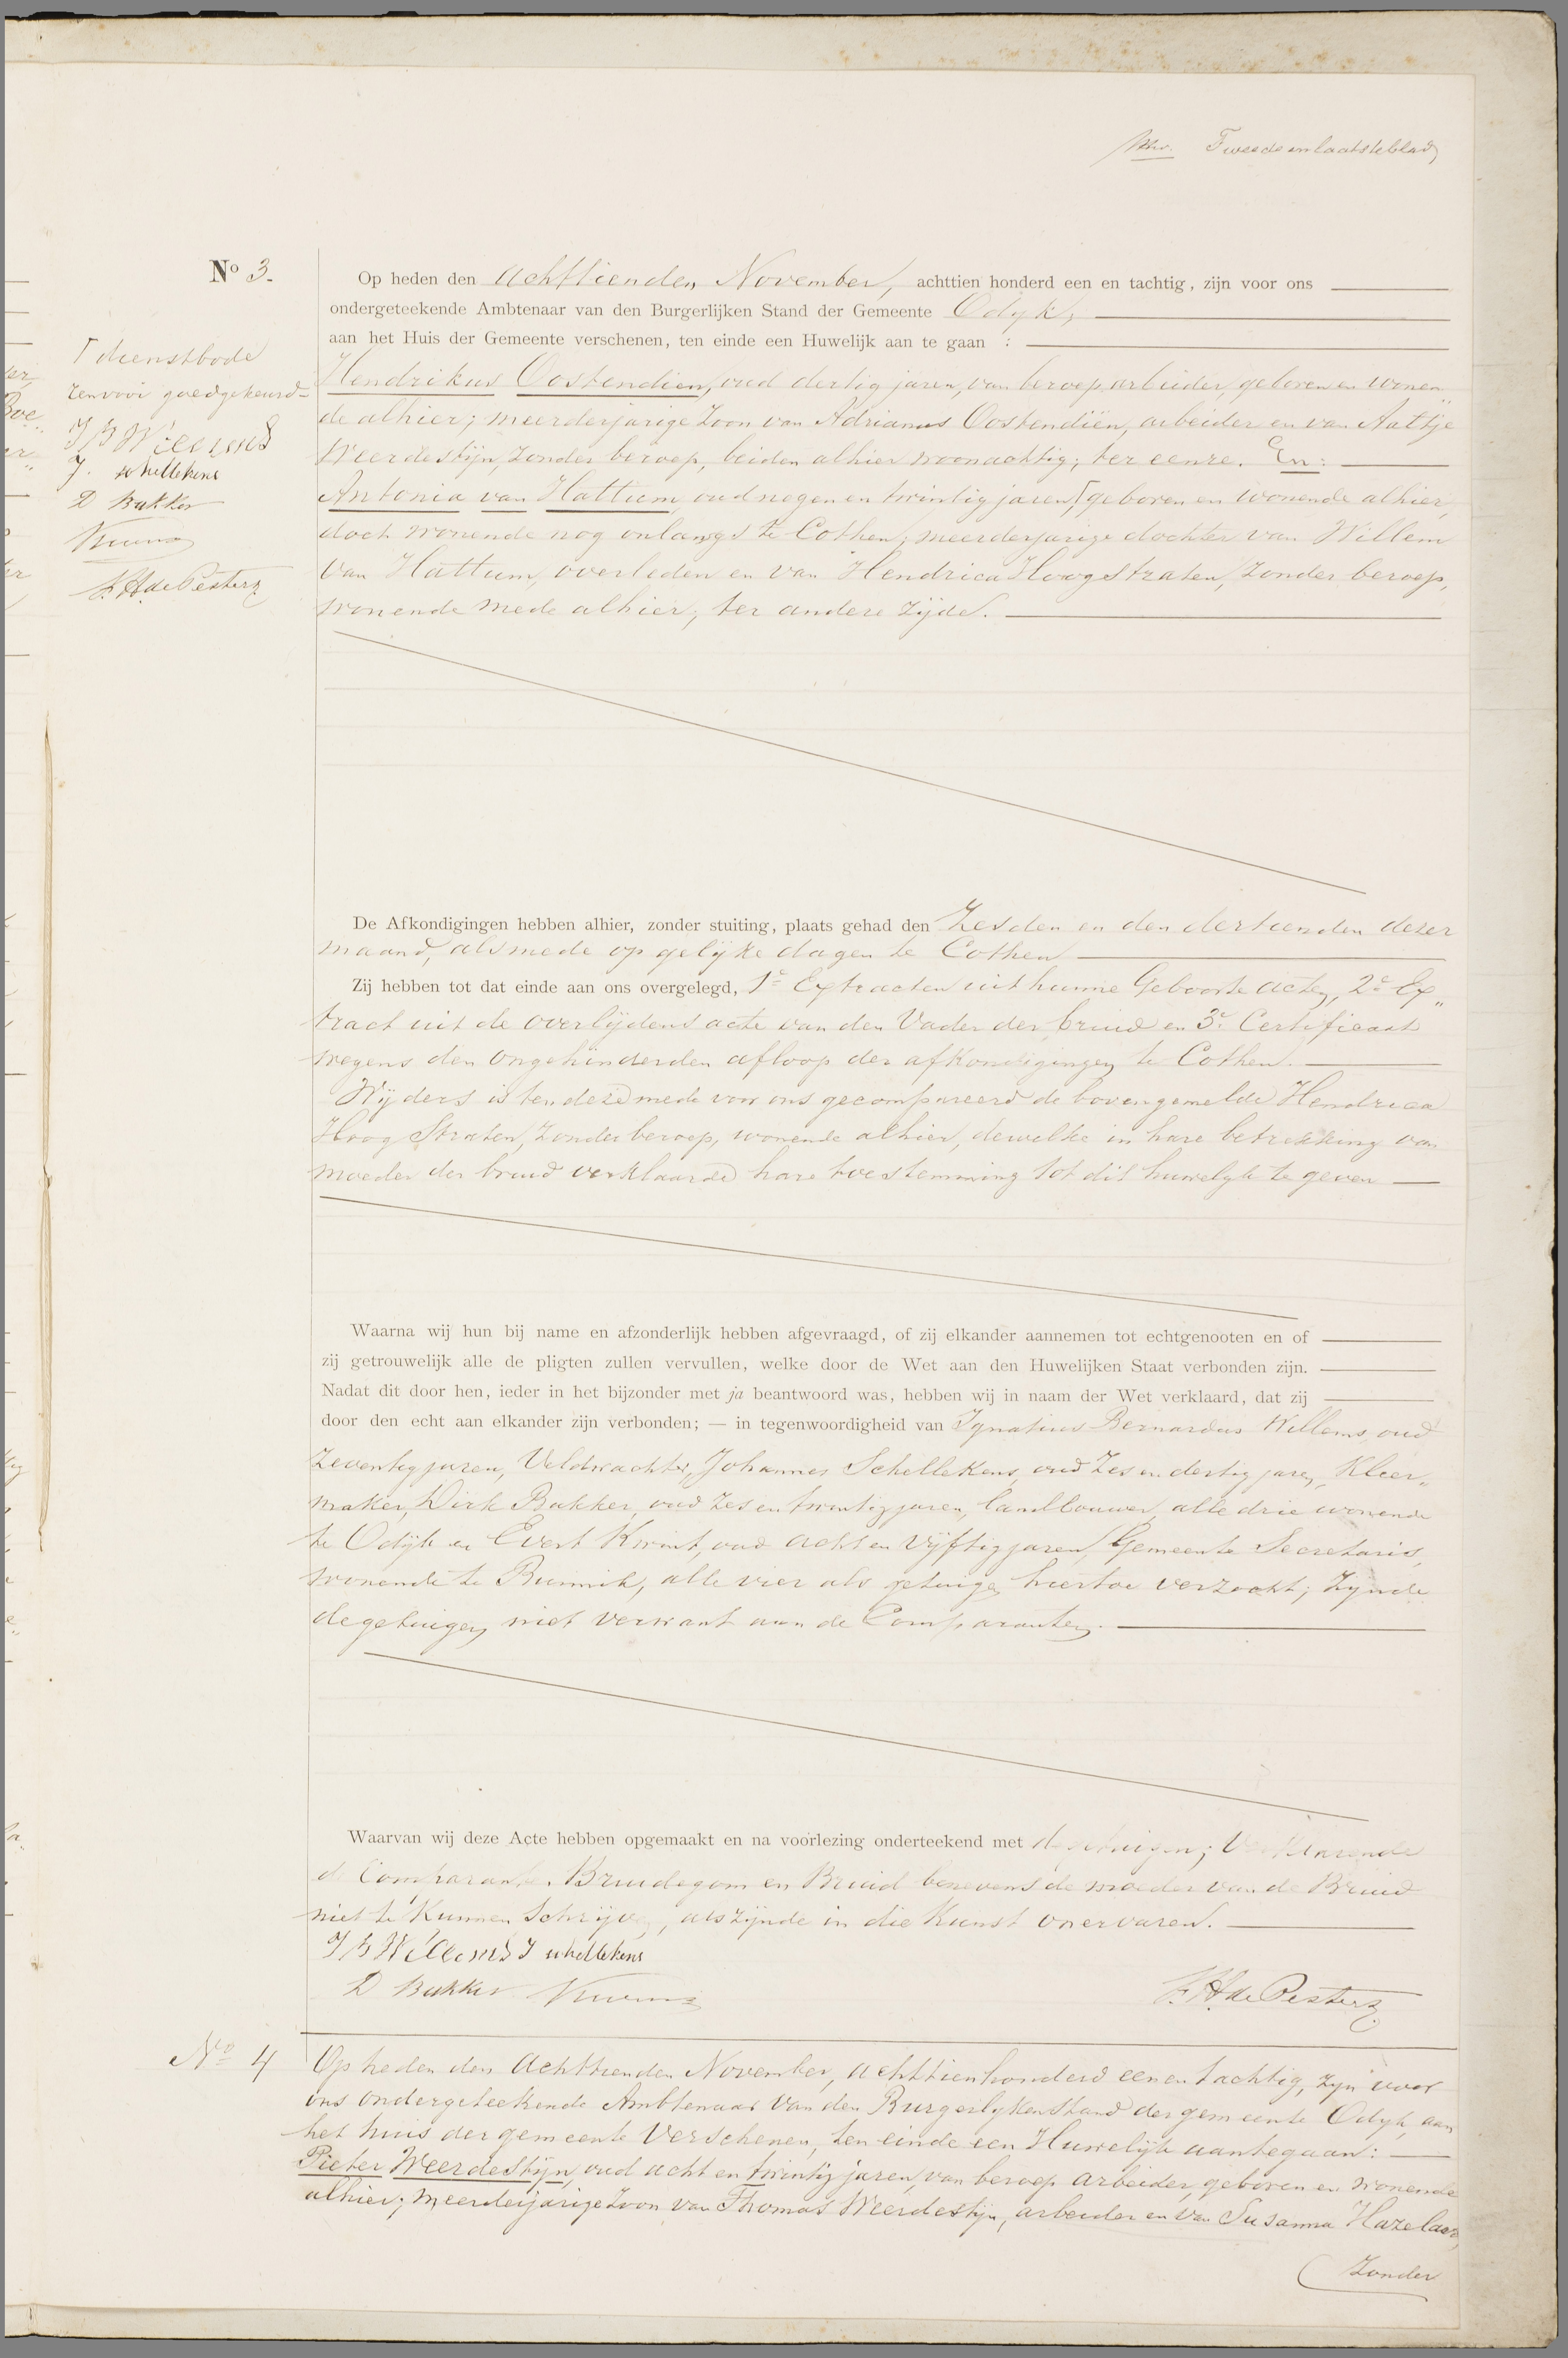 Tweede en laatste blad
No 3.
Op heden den achttienden November, achttien honderd een en tachtig, zijn voor ons
ondergeteekende Ambtenaar van den Burgerlijken Stand der Gemeente Odijk,
aan het Huis der Gemeente verschenen, ten einde een Huwelijk aan te gaan :
Hendrikus Oostendiën, oud dertig jaren, van beroep arbeider, geboren en wonen„
de alhier; meerderjarige Zoon van Adrianus Oostendiën, arbeider en van Aaltje
Weerdestijn, Zonder beroep, beiden alhier woonachtig; ter eenre. En:
Antonia van Hattum, oud negen en twintig jaren, ⌈ geboren en wonende alhier,
doch wonende nog onlangs te Cothen; meerderjarige dochter van Willem
van Hattum, overleden en van Hendrica Hoogstraten, Zonder beroep,
wonende mede alhier, ter andere zijde.
⌈ dienstbode
renvooi goedgekeurd
I B Willems
J. schellekens
D Bakker
F.H. de Pesters
De Afkondigingen hebben alhier, zonder stuiting, plaats gehad den Zesden en den dertienden dezer
maand, alsmede op gelijke dagen te Cothen
Zij hebben tot dat einde aan ons overgelegd, 1e Extracten uit hunne Geboorte acten, 2e Ex„
tract uit de overlijdens acte van den Vader der bruid en 3e Certificaat
wegens den ongehinderden afloop der afkondigingen te Cothen.
Wijders is ten deze mede voor ons gecompareerd de bovengemelde Hendrica
Hoog Straten, Zonder beroep, wonende alhier, dewelke in hare betrekking van
moeder der bruid verklaarde hare toestemming tot dit huwelijk te geven
Waarna wij hun bij name en afzonderlijk hebben afgevraagd, of zij elkander aannemen tot echtgenooten en of
zij getrouwelijk alle de pligten zullen vervullen, welke door de Wet aan den Huwelijken Staat verbonden zijn.
Nadat dit door hen, ieder in het bijzonder met ja beantwoord was, hebben wij in naam der Wet verklaard, dat zij
door den echt aan elkander zijn verbonden; — in tegenwoordigheid van Ignatius Bernardus Willems, oud
Zeventig jaren, Veldwachter, Johannes Schellekens, oud Zes en dertig jaren, Kleer„
maker, Dirk Bakker, oud Zes en twintig jaren, landbouwer, alle drie wonende
te Odijk en Evert Kwint, oud acht en vijftig jaren, Gemeente Secretaris,
wonende te Bunnik, alle vier als getuigen hiertoe verzocht; Zijnde
de getuigen niet verwant aan de Comparanten.
Waarvan wij deze Acte hebben opgemaakt en na voorlezing onderteekend met de getuigen; Verklarende
de Comparanten Bruidegom en Bruid benevens de moeder van de Bruid
niet te Kunnen Schrijven, als zijnde in die Kunst onervaren.
I B Willems J schellekens
D Bakker
F.H. de Pesters
No 4
Op heden den achttienden November, achttienhonderd een en tachtig, zijn voor
ons ondergeteekende Ambtenaar van den Burgerlijken Stand der gemeente Odijk, aan
het huis der gemeente Verschenen, ten einde een Huwelijk aantegaan:
Pieter Weerdestijn, oud acht en twintig jaren, van beroep arbeider, geboren en wonende
alhier; meerderjarige Zoon van Thomas Weerdestijn, arbeider en van Susanna Hazelaar,
Zonder